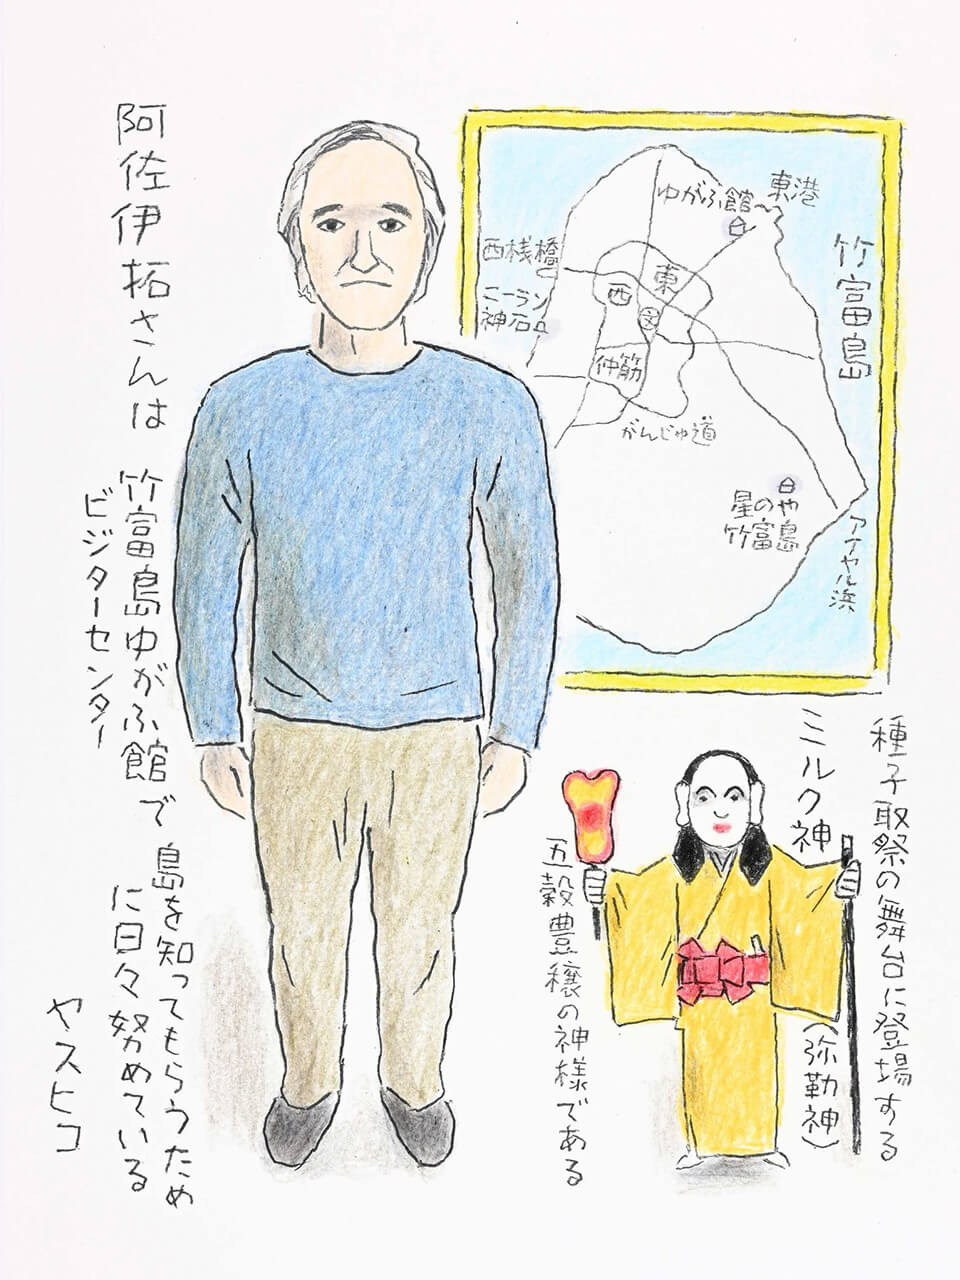 阿佐伊拓さんは
竹富島ゆがふ館で
ビジターセンター
島を知ってもらうため
に日々努めている
ヤスヒコ
竹富島
東港
ゆがふ館
西桟橋
ニーラン
神石
東
西
文
仲筋
がんじゅ道
星のや
竹富島
アイヤル浜
種子取祭の舞台に登場する
ミルク神
(弥勒神)
五穀豊穣の神様である